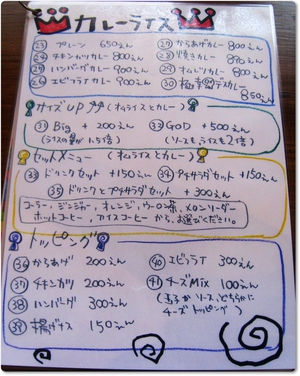 カレーライス
㉓ プレーン 650えん
㉔ チキンカツカレー 800えん
㉕ ハンバーグカレー 900えん
㉖ エビフライカレー 900えん
㉗ からあげカレー 800えん
㉘ 焼きカレー 800えん
㉙ オムレツカレー 800えん
㉚ カレー 850えん
サイズUP (オムライスとカレー)
㉛ Big +200えん
(ライスの量が1.5倍)
㉜ GOD +500えん
(ソースもライスも2倍)
セットメニュー (オムライスとカレー)
㉝ ドリンクセット +150えん
㉞ プチサラダセット +150えん
㉟ ドリンクとプチサラダセット +300えん
コーラ、ジンジャー、オレンジ、ウーロン茶、メロンソーダー
ホットコーヒー、アイスコーヒーから、お選びください。
トッピング
㊱ からあげ 200えん
㊲ チキンカツ 200えん
㊳ ハンバーグ 300えん
㊴ 揚げナス 150えん
㊵ エビフライ 300えん
㊶ チーズMix 100えん
(玉子かソース、どちらかに
チーズトッピング)